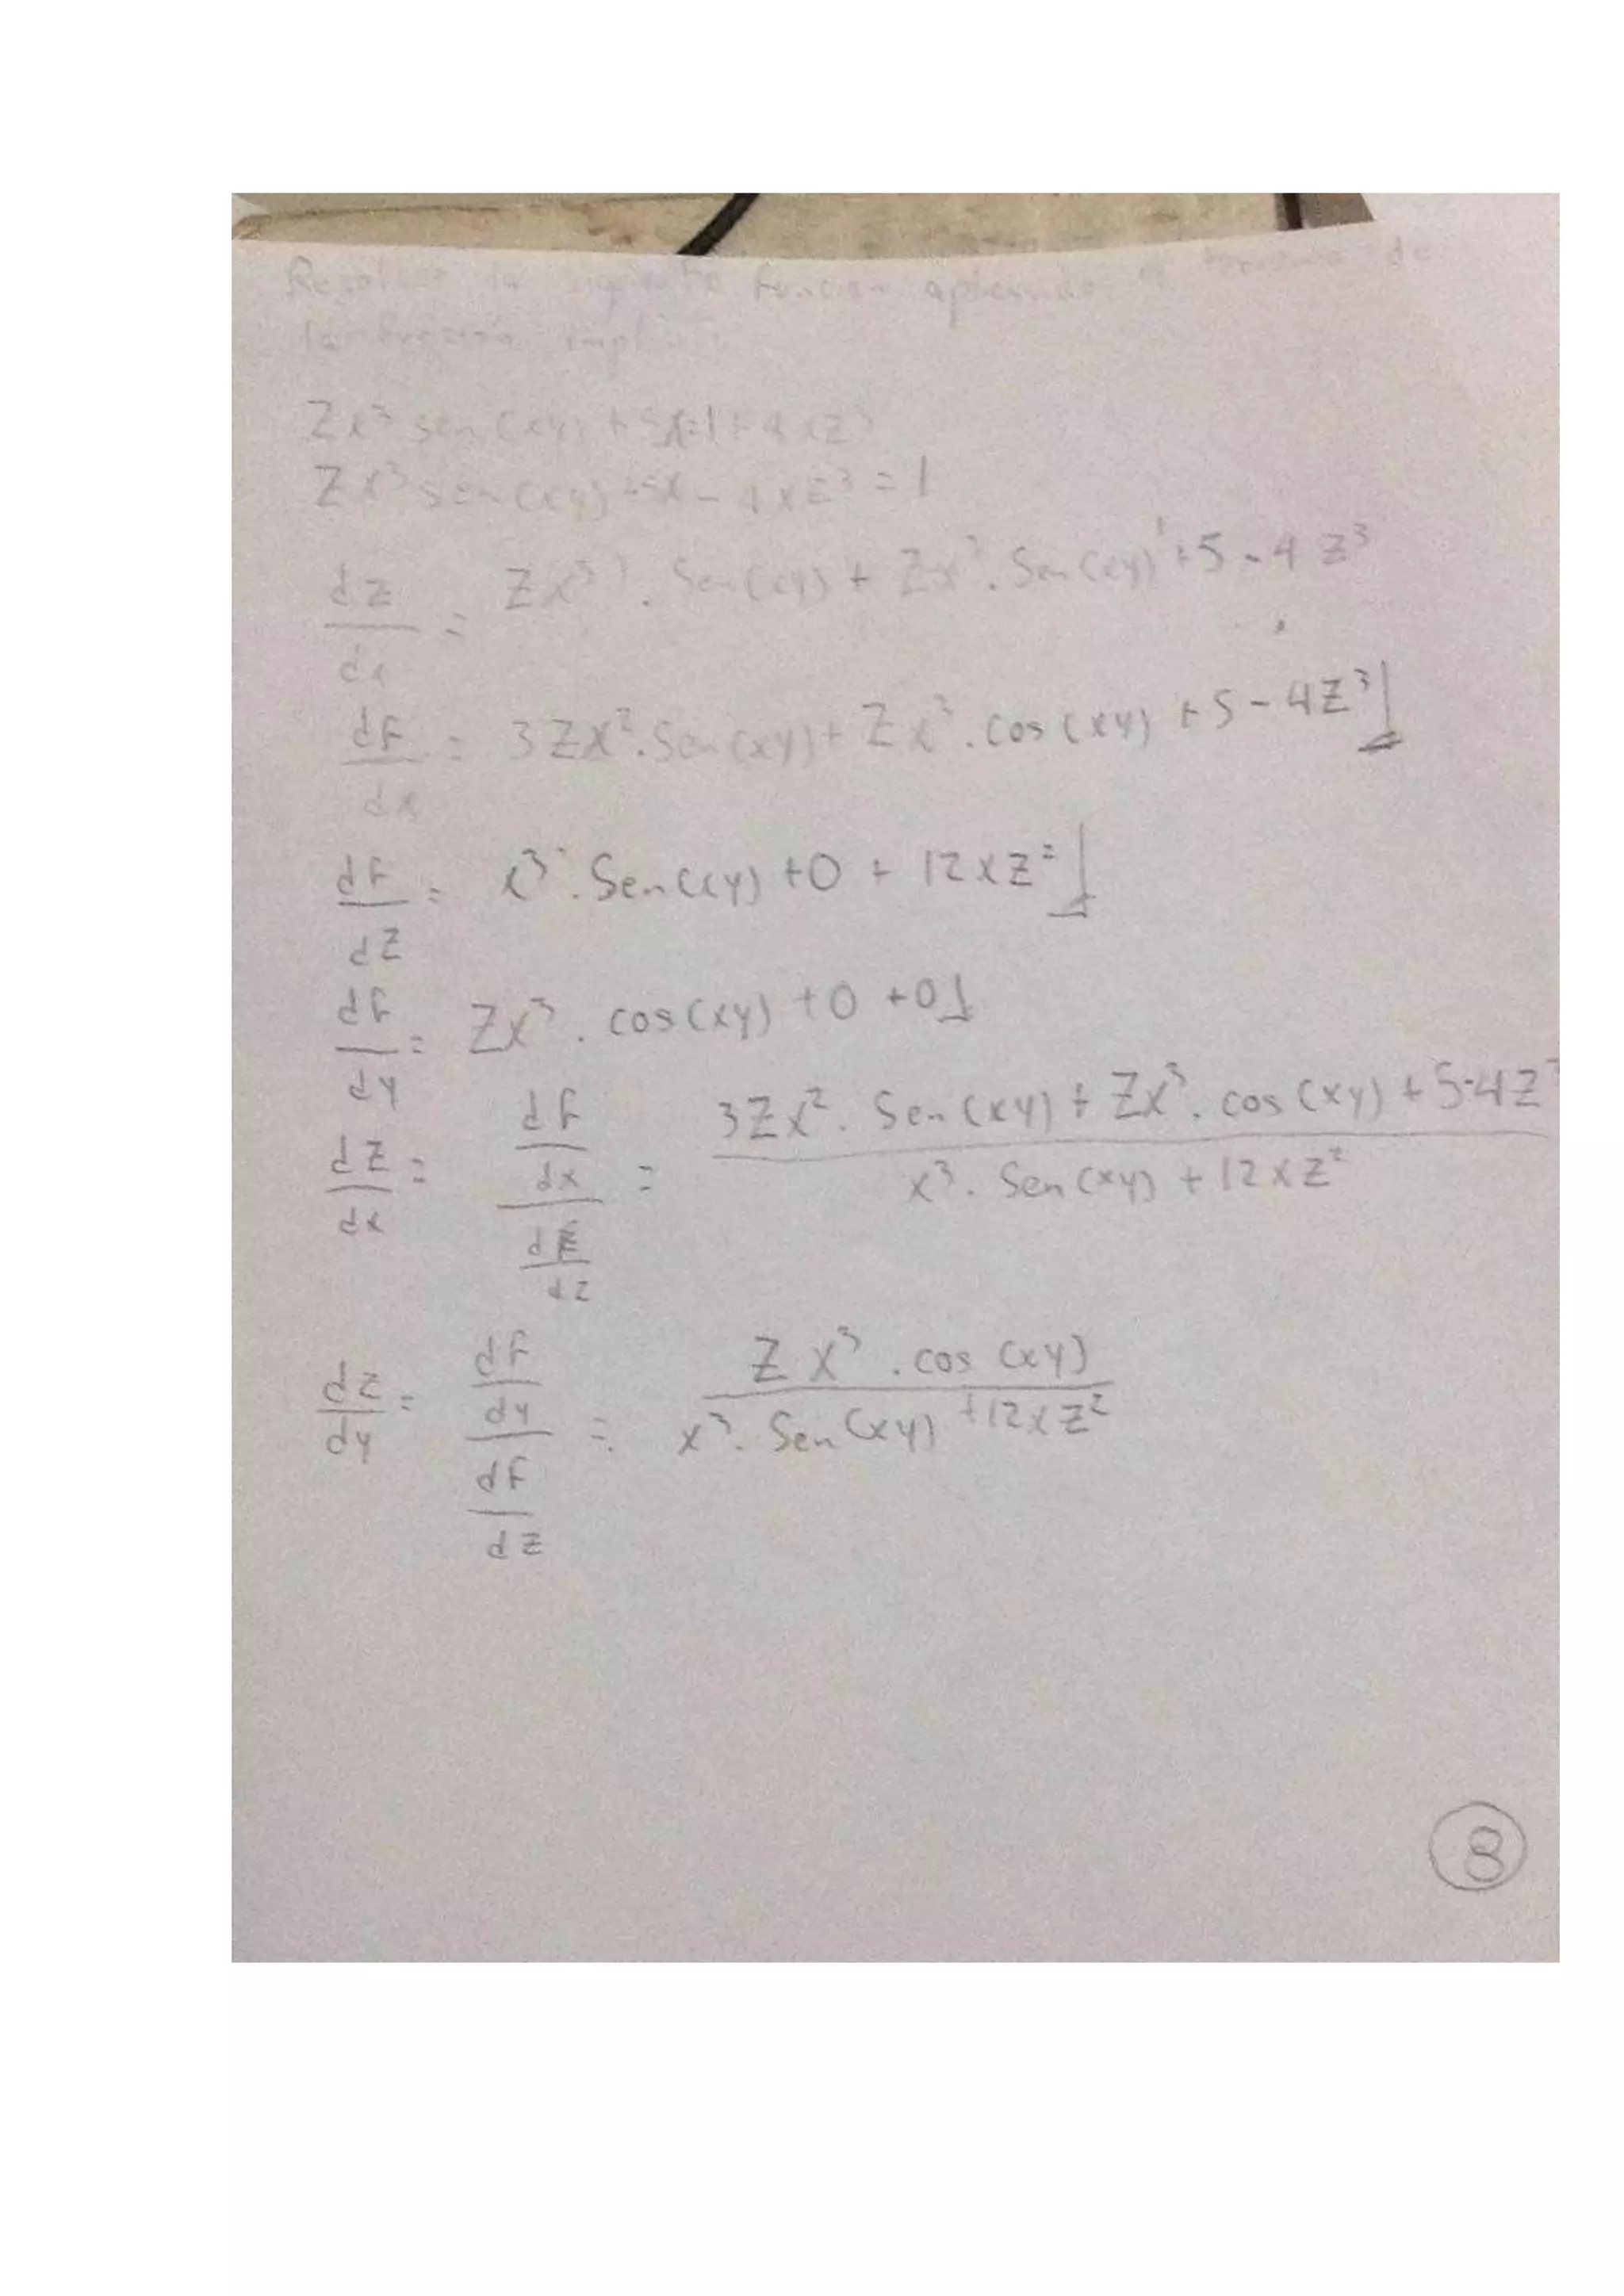 Resolver la siguiente función aplicando el teorema de
la función implicita
Zx³ sen(xy) + 5x = 1 + 4xz³
Zx³ sen(xy) + 5x - 4xz³ = 1
dz/dx = Zx³' . Sen(xy) + Zx³ . Sen(xy)' + 5 - 4z³
df/dx = 3Zx² . Sen(xy) + Zx³ . cos(xy) + 5 - 4z³
df/dz = x³ . Sen(xy) + 0 + 12xz²
df/dy = Zx³ . cos(xy) + 0 + 0
dz/dx = df/dx / df/dz = 3Zx² . Sen(xy) + Zx³ . cos(xy) + 5-4z³ / x³ . Sen(xy) + 12xz²
dz/dy = df/dy / df/dz = Zx³ . cos(xy) / x³ . Sen(xy) + 12xz²
8